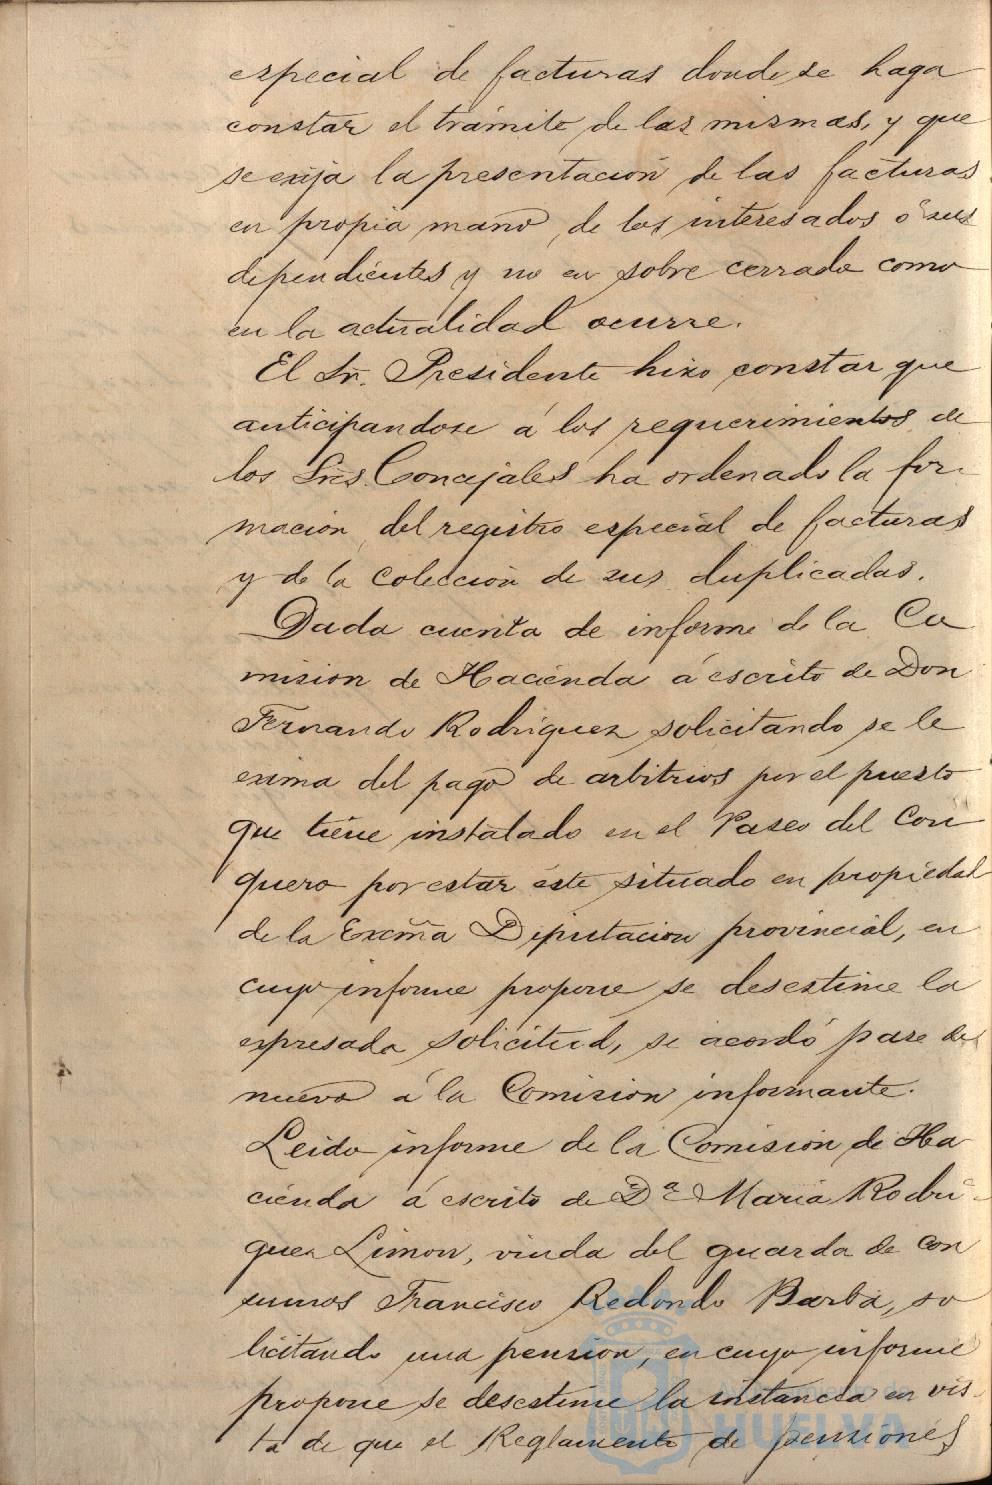 especial de facturas donde se haga
constar el trámite de las mismas, y que
se exija la presentación de las facturas
en propia mano, de los interesados ó sus
dependientes y no en sobre cerrado como
en la actualidad ocurre.
El Sr. Presidente hizo constar que
anticipandose á los requerimientos de
los Sres. Concejales ha ordenado la for-
macion del registro especial de facturas
y de la colección de sus duplicadas.
Dada cuenta de informe de la Co
mision de Hacienda á escrito de Don
Fernando Rodriguez solicitando se le
exima del pago de arbitrios por el puesto
que tiene instalado en el Paseo del Con
quero por estar éste situado en propiedad
de la Excma Diputacion provincial, en
cuyo informe propone se desestime la
expresada solicitud, se acordó pase de
nuevo á la Comision informante.
Leido informe de la Comision de Ha
cienda á escrito de Dª Maria Rodri-
guez Limon, viuda del guarda de con
sumos Francisco Redondo Barba, so
licitando una pension, en cuyo informe
propone se desestime la instancia en vis-
ta de que el Reglamento de pensiones
Ayuntamiento de
HUELVA